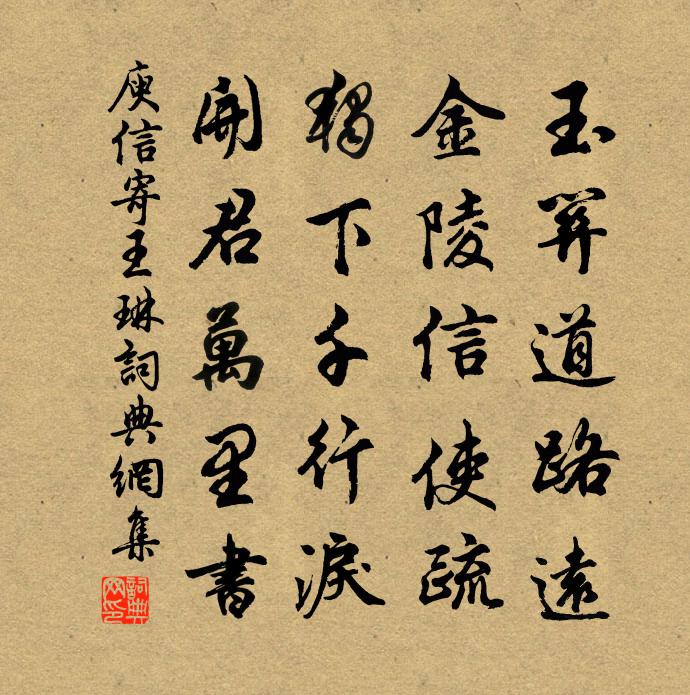 玉關道路遠
金陵信使疏
獨下千行淚
開君萬里書
庾信寄王琳詞典網集
詞典
网印